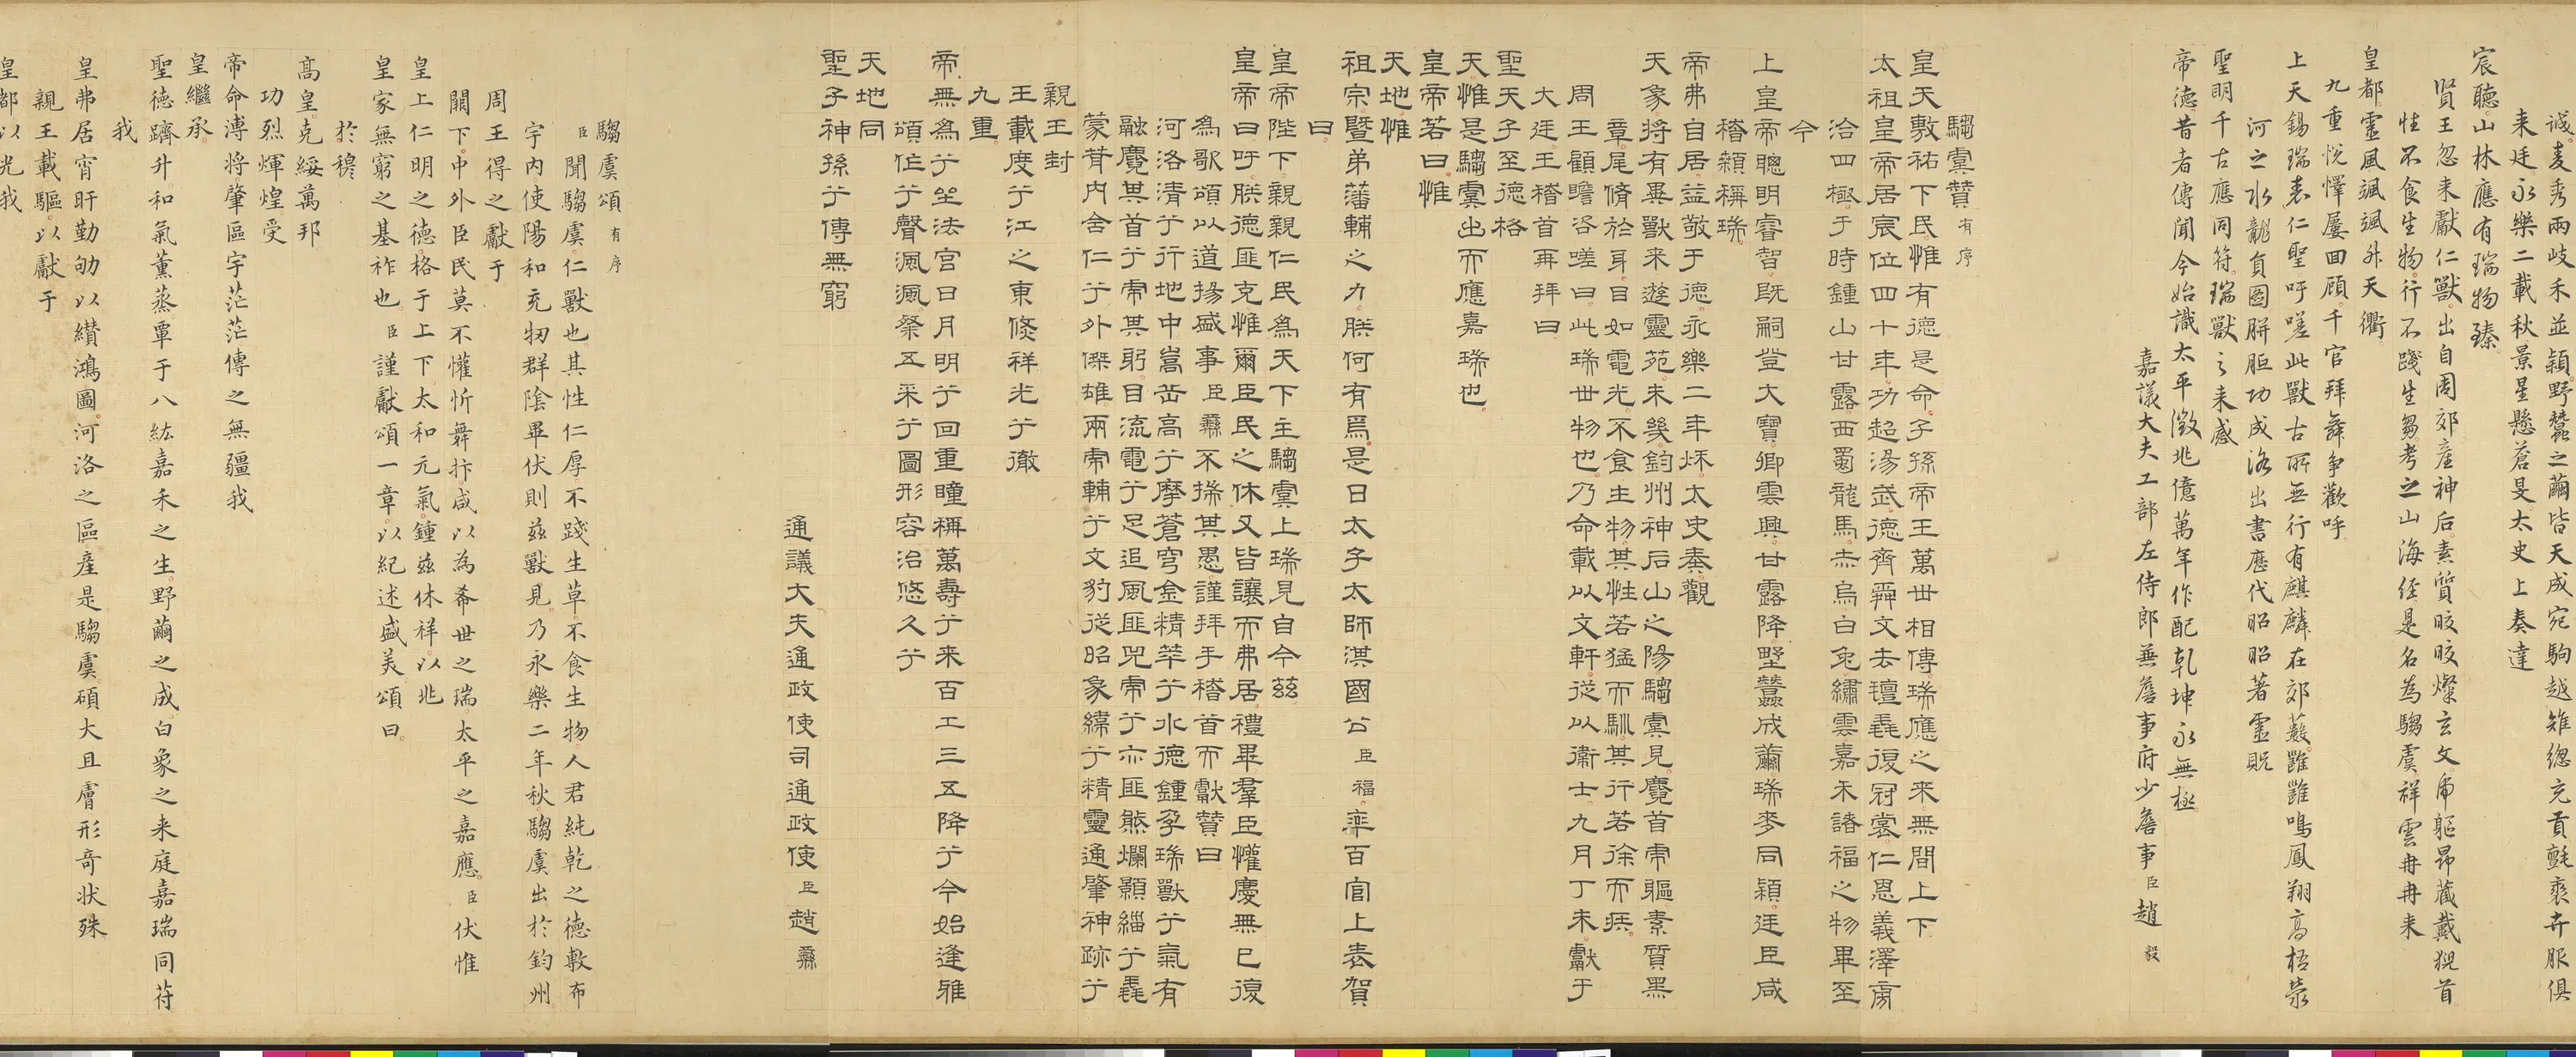 誠麦秀兩岐禾並穎野蠶之繭皆天成宛駒越雉總充貢氈裘卉服俱
来廷永樂二載秋景星懸蒼旻太史上奏達
宸聽山林應有瑞物臻
賢王忽来獻仁獸出自周郊産神后素質皎皎燦玄文虎軀昂藏戴猊首
性不食生物行不踐生芻考之山海經是名為騶虞祥雲冉冉来
皇都靈風颯颯外天衢
九重悅懌屢回顧千官拜舞争歡呼
上天錫瑞表仁聖吁嗟此獸古所無行有麒麟在郊薮雝雝鳴鳳翔高梧榮
河之水龍負圖胼胝功成洛出書歷代昭昭著靈貺
聖明千古應同符瑞獸之来感
帝德昔者傳聞今始識太平徵兆億萬年作配乾坤永無極
嘉議大夫工部左侍郎兼詹事府少詹事臣趙毅
騶虞贊有序
皇天敷祐下民惟有德是命子孫帝王萬世相傳瑞應之来無間上下
太祖皇帝居宸位四十年功起湯武德齊舜文去氊毳復冠裳仁恩義澤霶
洽四極于時鍾山甘露西蜀龍馬赤烏白兔繡雲嘉禾諸福之物畢至
今
上皇帝聰明睿智既嗣登大寶卿雲興甘露降野蠶成繭瑞麥同穎廷臣咸
稽顙稱瑞
帝弗自居益敬于德永樂二年秋太史奏觀
天象將有異獸来遊靈苑未幾鈞州神后山之陽騶虞見麑首虎軀素質黑
章尾脩於身目如電光不食生物其性若猛而馴其行若徐而疾
周王顧瞻咨嗟曰此瑞世物也乃命載以文軒從以衞士九月丁未獻于
大廷王稽首再拜曰
聖天子至德格
天惟是騶虞出而應嘉瑞也
皇帝若曰惟
天地惟
祖宗暨弟藩輔之力朕何有焉是日太子太師淇國公臣福率百官上表賀
曰
皇帝陛下親親仁民為天下主騶虞上瑞見自今茲
皇帝曰吁朕德匪克惟爾臣民之休又皆讓而弗居禮畢羣臣懽慶無已復
為歌頌以道揚盛事臣彝不揣其愚謹拜手稽首而獻贊曰
河洛清兮行地中嵩岳高兮摩蒼穹金精萃兮水德鍾孕瑞獸兮氣有
融麑其首兮虎其躬目流電兮足追風匪兕虎兮亦匪熊爛顥緇兮毳
蒙茸内含仁兮外傑雄兩虎輔兮文豹從昭象緯兮精靈通肇神跡兮
親王封
王載度兮江之東倏祥光兮徹
九重
帝無為兮坐法宫日月明兮回重瞳稱萬壽兮来百工三五降兮今始逢雅
頌作兮聲渢渢祭五采兮圖形容治悠久兮
天地同
聖子神孫兮傳無窮
通議大夫通政使司通政使臣趙彝
騶虞頌有序
臣聞騶虞仁獸也其性仁厚不踐生草不食生物人君純乾之德敷布
宇内使陽和充牣群陰畢伏則茲獸見乃永樂二年秋騶虞出於鈞州
周王得之獻于
闕下中外臣民莫不懽忻舞抃咸以為希世之瑞太平之嘉應臣伏惟
皇上仁明之德格于上下太和元氣鍾茲休祥以兆
皇家無窮之基祚也臣謹獻頌一章以紀述盛美頌曰
於穆
高皇克綏萬邦
功烈煇煌受
帝命溥將肇區宇茫茫傳之無疆我
皇繼承
聖德躋升和氣薰蒸覃于八紘嘉禾之生野繭之成白象之来庭嘉瑞同苻
我
皇弗居宵旰勤劬以纘鴻圖河洛之區産是騶虞碩大且膚形奇状殊
親王載驅以獻于
皇都以光我